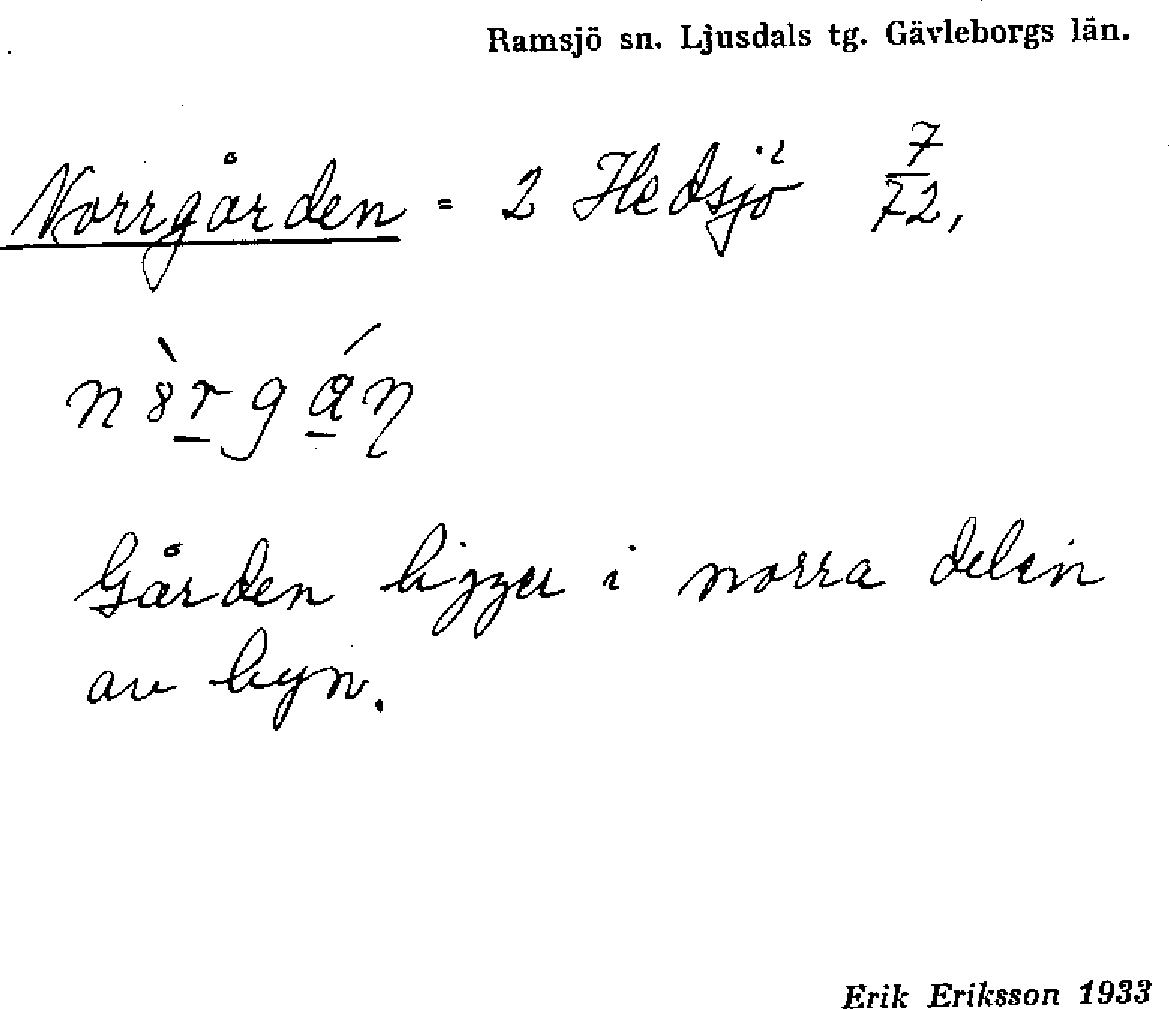 Ramsjö sn. Ljusdals tg. Gävleborgs län.
Norrgården = 2 Hedsjö 7/72,
Gården ligger i norra delen
av byn.
Erik Eriksson 1933